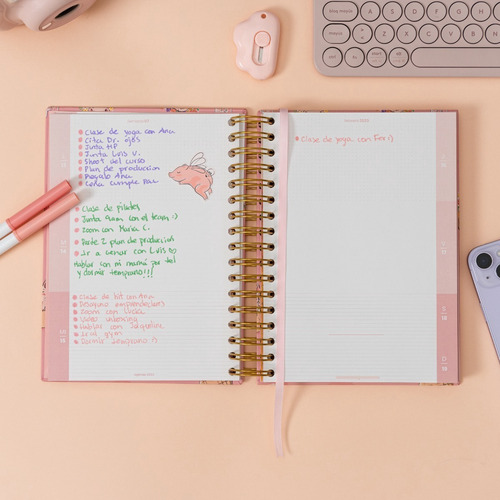 Clase de yoga con Ana
Cita Dr. ojos
Junta HP
Junta Luis V.
Shoot del curso
Plan de producción
Regalo Ana
Cena cumple
Clase de pilates
Junta 9am con el team :)
Zoom con Maria C.
Parte 2 plan de producción
Ir a cenar con Luis
Hablar con mi mamá por tel
y dormir temprano!!!
Clase de hit con Ana
Desayuno emprendedoras
Zoom con
Video unboxing
Hablar con Jacqueline
Ir al gym
Dormir temprano :)
Clase de yoga con Fer :)